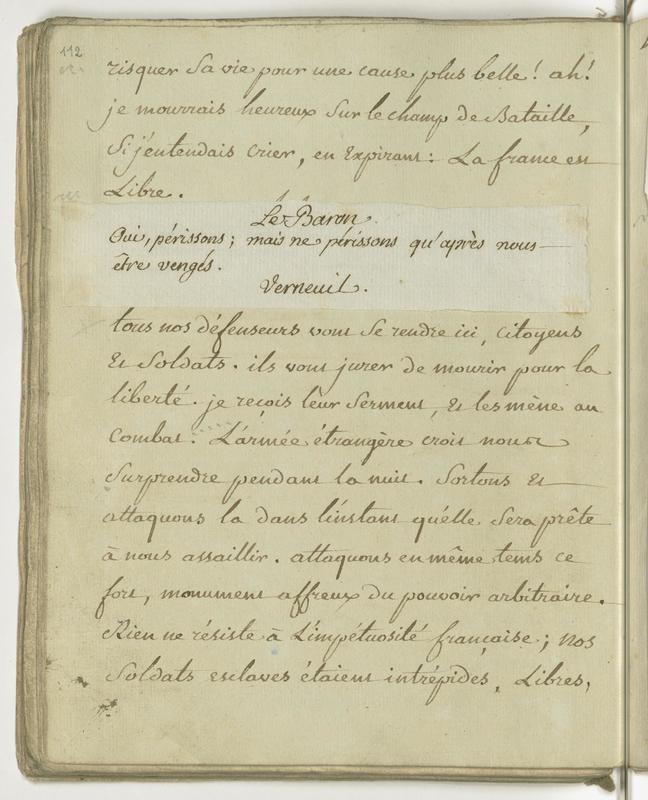 112
risquer Sa vie pour une cause plus belle! ah!
je mourrais heureux Sur le champ de Bataille,
Si j'entendais crier, en Expirant: La france est
Libre.
Le Baron.
Oui, périssons; mais ne périssons qu'après nous
être vengés.
Verneuil.
tous nos défenseurs vont Se rendre ici, citoyens
Et Soldats. ils vont jurer de mourir pour la
liberté. je reçois leur Serment, Et les mène au
Combat. L'armée étrangère croit nous
Surprendre pendant la nuit. Sortons Et
attaquons la dans l'instant qu'elle Sera prête
à nous assaillir. attaquons en même tems ce
fort, monument affreux du pouvoir arbitraire.
Rien ne résiste à L'impétuosité française; nos
Soldats esclaves étaient intrépides, Libres,